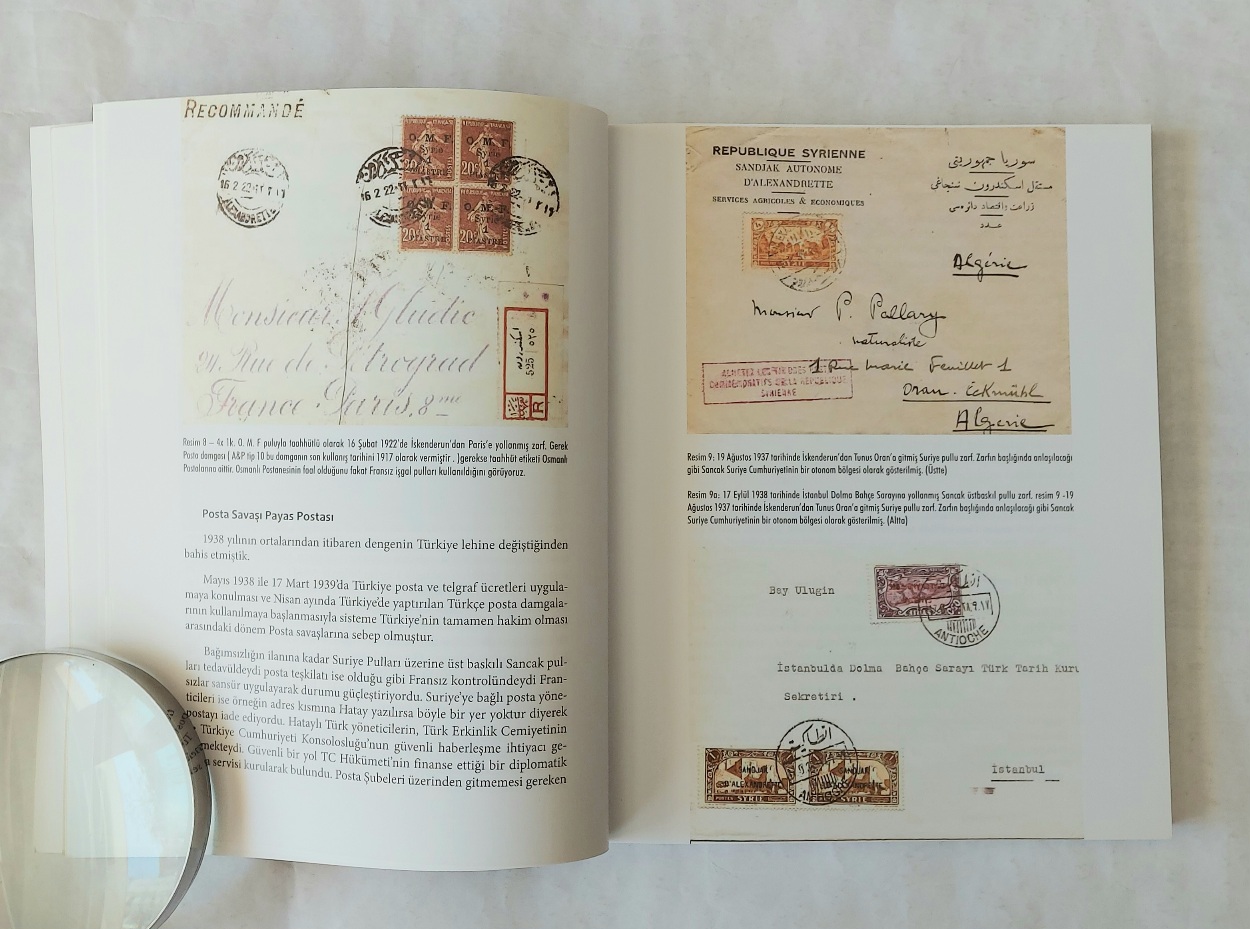 RECOMMANDÉ
16 2 22
ALEXANDRETTE
16 2 22
O. M. F.
Syrie
1
PIASTRE
20c
Monsieur
Rue de Petrograd
France Paris, 8me
525
R
Resim 8 – 4x 1k. O. M. F puluyla taahhütlü olarak 16 Şubat 1922'de İskenderun'dan Paris'e yollanmış zarf. Gerek
Posta damgası ( A&P tip 10 bu damganın son kullanış tarihini 1917 olarak vermiştir . )gerekse taahhüt etiketi Osmanlı
Postalarına aittir. Osmanlı Postanesinin faal olduğunu fakat Fransız işgal pulları kullanıldığını görüyoruz.
Posta Savaşı Payas Postası
1938 yılının ortalarından itibaren dengenin Türkiye lehine değiştiğinden
bahis etmiştik.
Mayıs 1938 ile 17 Mart 1939'da Türkiye posta ve telgraf ücretleri uygula-
maya konulması ve Nisan ayında Türkiye'de yaptırılan Türkçe posta damgala-
rının kullanılmaya başlanmasıyla sisteme Türkiye'nin tamamen hakim olması
arasındaki dönem Posta savaşlarına sebep olmuştur.
Bağımsızlığın ilanına kadar Suriye Pulları üzerine üst baskılı Sancak pul-
ları tedavüldeydi posta teşkilatı ise olduğu gibi Fransız kontrolündeydi Fran-
sızlar sansür uygulayarak durumu güçleştiriyordu. Suriye'ye bağlı posta yöne-
ticileri ise örneğin adres kısmına Hatay yazılırsa böyle bir yer yoktur diyerek
postayı iade ediyordu. Hataylı Türk yöneticilerin, Türk Erkinlik Cemiyetinin
Türkiye Cumhuriyeti Konsolosluğu'nun güvenli haberleşme ihtiyacı ge-
mekteydi. Güvenli bir yol TC Hükümeti'nin finanse ettiği bir diplomatik
servisi kurularak bulundu. Posta Şubeleri üzerinden gitmemesi gereken
REPUBLIQUE SYRIENNE
SANDJAK AUTONOME
D'ALEXANDRETTE
SERVICES AGRICOLES & ECONOMIQUES
سوريا جمهوريتى
مستقل اسكندرون سنجاغى
زراعت واقتصاد دائره سى
عدد
Algérie
Monsieur P. Pallary
naturaliste
1 Rue Marie Feuillet 1
Oran. Eckmühl
Algérie
COMMEMORATIFS DE LA REPUBLIQUE
SYRIENNE
Resim 9: 19 Ağustos 1937 tarihinde İskenderun'dan Tunus Oran'a gitmiş Suriye pullu zarf. Zarfın başlığında anlaşılacağı
gibi Sancak Suriye Cumhuriyetinin bir otonom bölgesi olarak gösterilmiş. (Üstte)
Resim 9a: 17 Eylül 1938 tarihinde İstanbul Dolma Bahçe Sarayına yollanmış Sancak üstbaskıl pullu zarf. resim 9 -19
Ağustos 1937 tarihinde İskenderun'dan Tunus Oran'a gitmiş Suriye pullu zarf. Zarfın başlığında anlaşılacağı gibi Sancak
Suriye Cumhuriyetinin bir otonom bölgesi olarak gösterilmiş. (Altta)
Bay Ulugin
ANTIOCHE
İstanbulda Dolma Bahçe Sarayı Türk Tarih Kuru
Sekretiri .
انطاكية
SANDJAK
D'ALEXANDRETTE
SYRIE
İstanbul